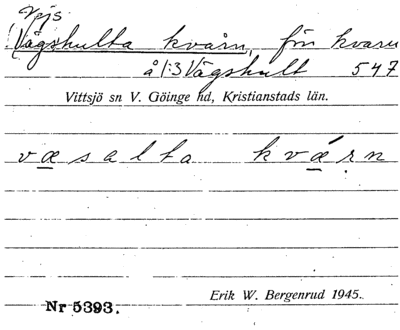 Vejs
Vägshulta kvarn, f̶ör kvarn
å 1:3 Vägshult 547
Vittsjö sn V. Göinge hd, Kristianstads län.
væsalta kværn
Erik W. Bergenrud 1945.
Nr 5393.